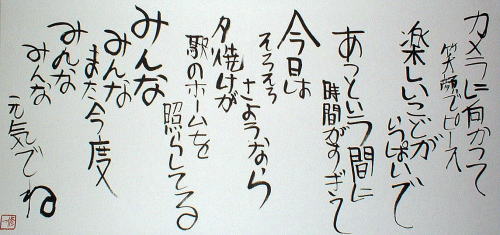 カメラに向かって
笑顔でピース
楽しいことが
いっぱいで
あっという間に
時間がすぎて
今日は
そろそろ
さようなら
夕焼けが
駅のホームを
照らしてる
みんな
みんな
また今度
みんな
みんな
元気でね